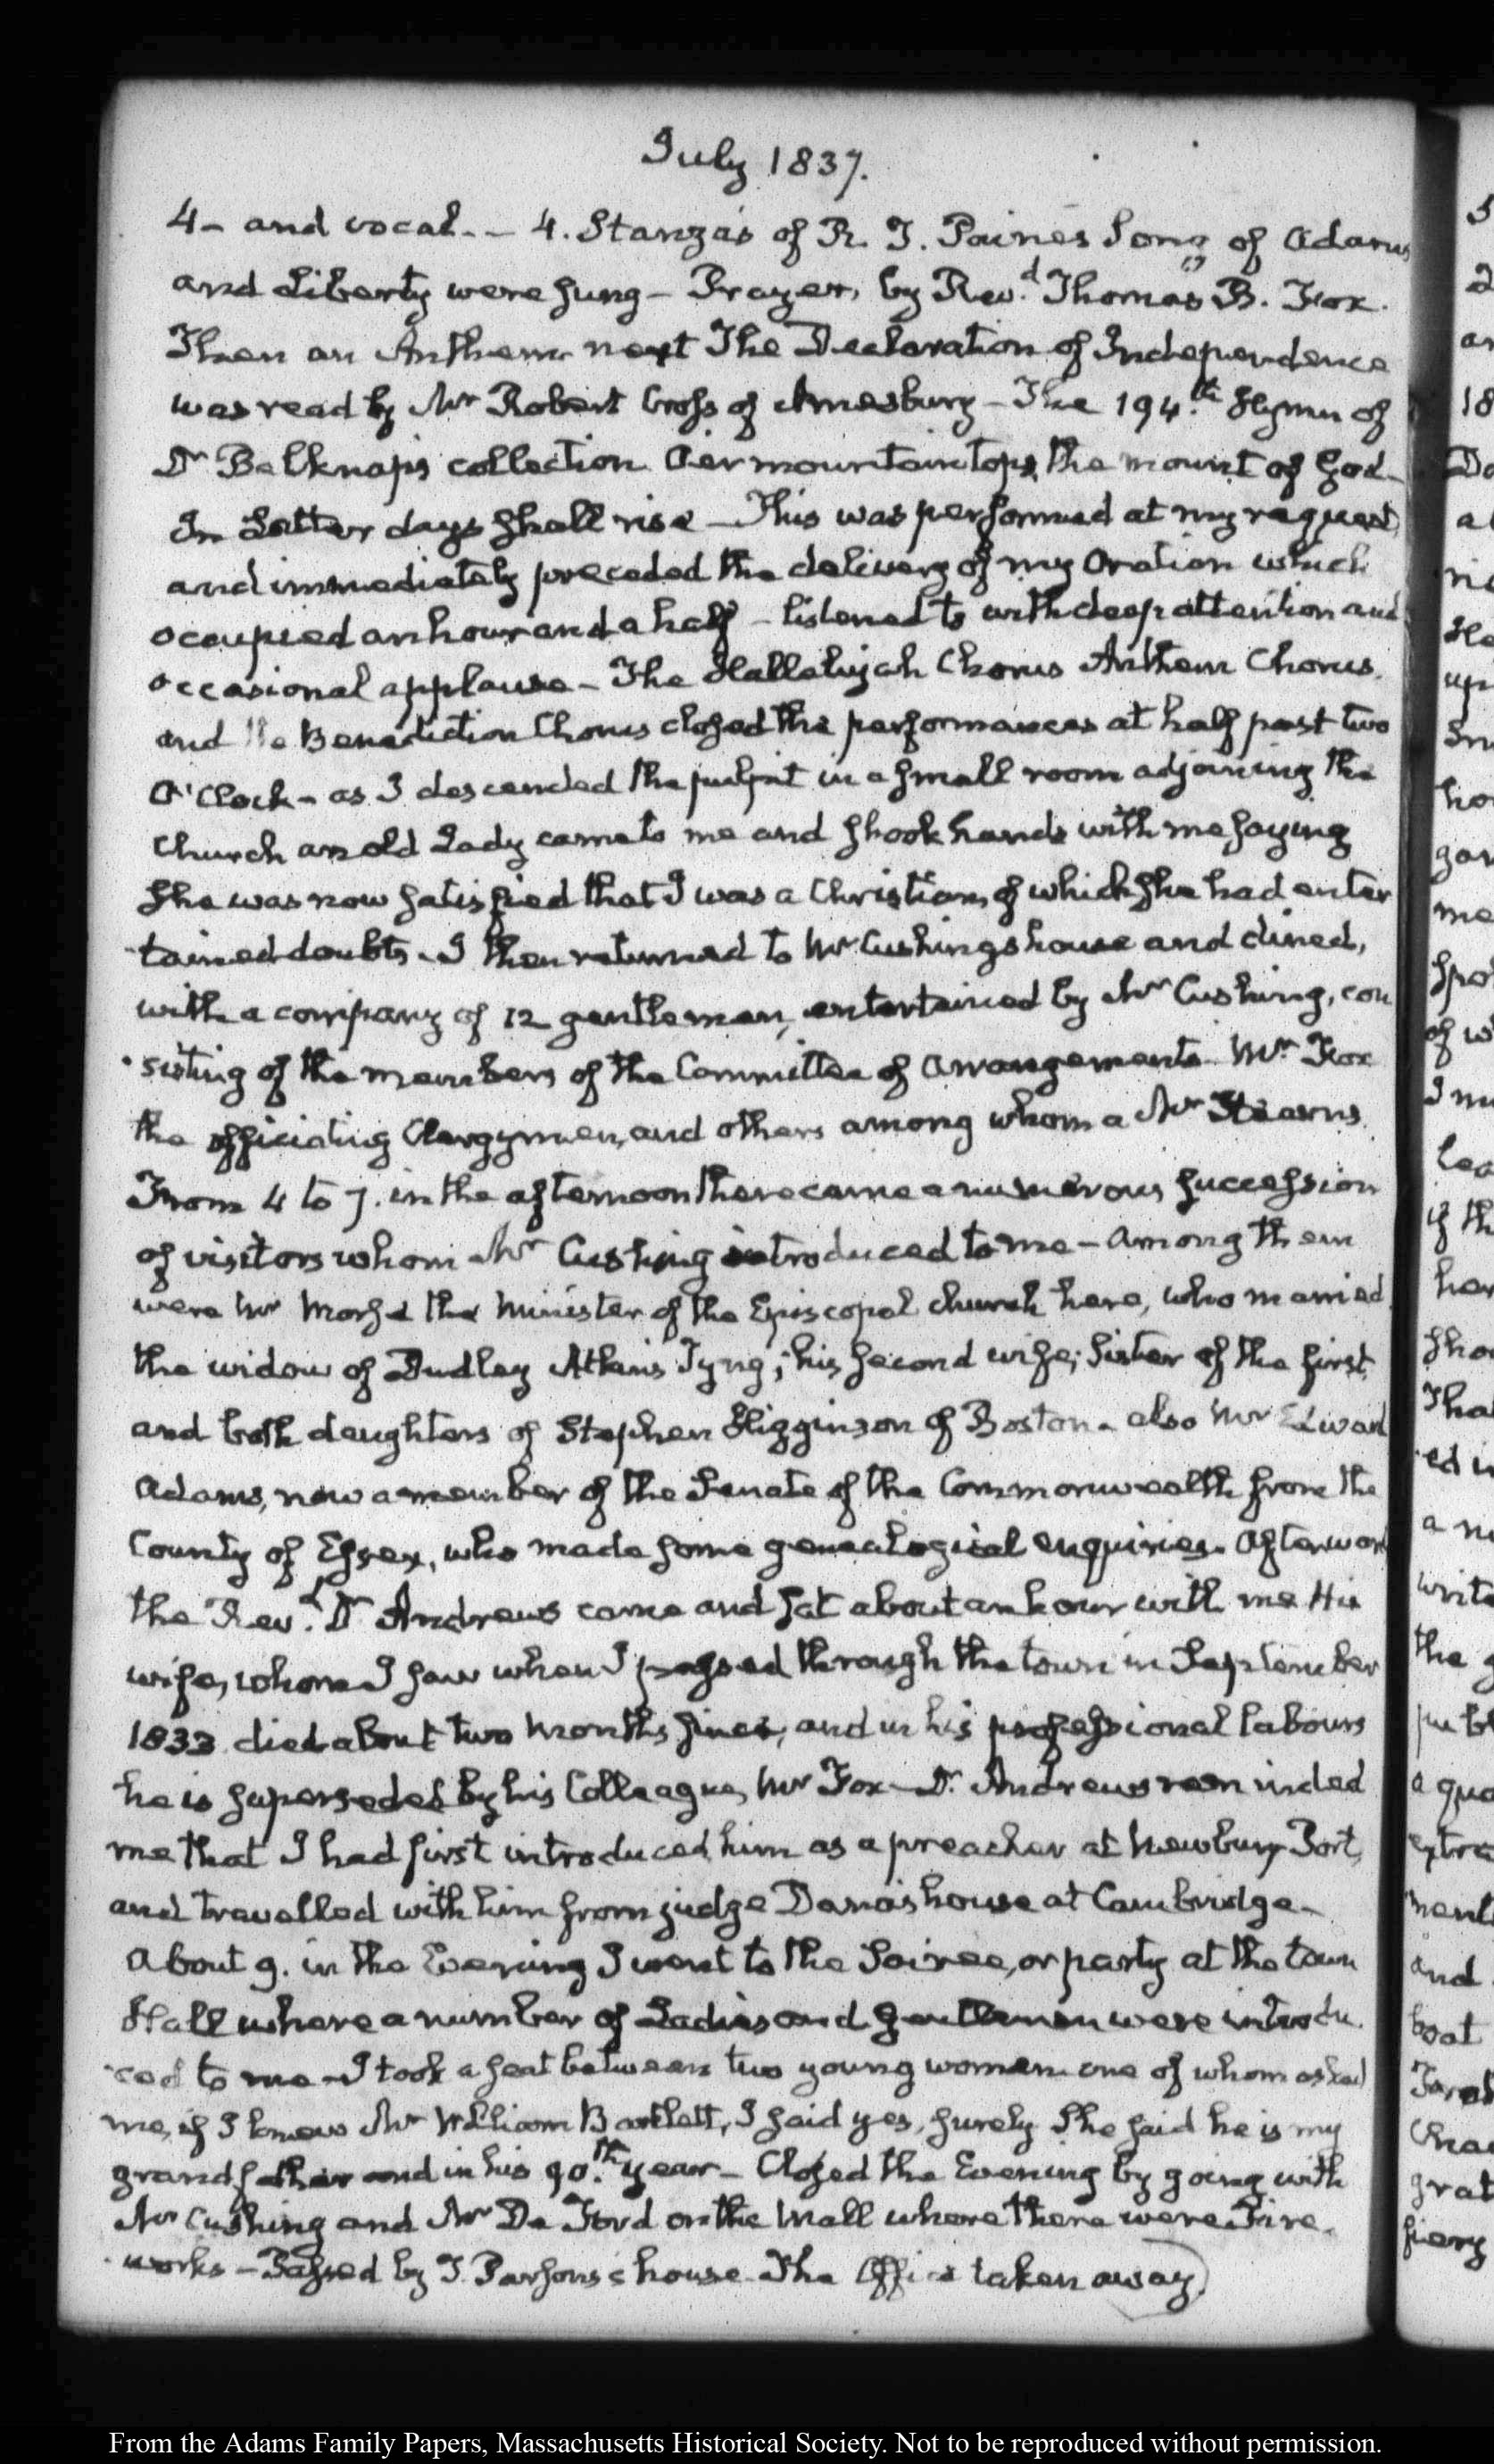 July 1837.
4- and vocal. - 4. Stanza's of R. T. Paine's Song of Adams
and Liberty were sung - Prayer, by Revd. Thomas B. Fox.
Then an Anthem next The Declaration of Independence
was read by Mr Robert Cross of Amesbury - The 194.th Hymn of
Dr Belknap's collection O'er mountain tops, the mount of God -
In Latter days shall rise - This was performed at my request,
and immediately preceded the delivery of my Oration which
occupied an hour and a half - listened to with deep attention and
occasional applause - The Hallelujah Chorus Anthem Chorus,
and the Benediction Chorus closed the performances at half past two
O'Clock - as I descended the pulpit in a small room adjoining the
Church an old Lady came to me and shook hands with me saying
she was now satisfied that I was a Christian, of which she had enter
-tained doubts. I then returned to Mr Cushing's house and dined,
with a company of 12 gentlemen, entertained by Mr Cushing, con
-sisting of the members of the Committee of Arrangements Mr Fox
the officiating Clergymen, and others among whom a Mr Stearns.
From 4 to 7. in the afternoon there came a numerous succession
of visitors whom Mr Cushing introduced to me - Among them
were Mr Morse the Minister of the Episcopal church here, who married
the widow of Dudley Atkins Tyng; his second wife; Sister of the first
and both daughters of Stephen Higginson of Boston. also Mr Edward
Adams, now a member of the Senate of the Commonwealth from the
County of Essex, who made some genealogical enquiries. Afterward
the Revd. Dr Andrews came and sat about an hour with me His
wife, whom I saw when I passed through the town in September
1833 died about two Months since, and in his professional labours
he is superseded by his Colleague, Mr Fox - Dr. Andrews reminded
me that I had first introduced him as a preacher at Newbury Port,
and travelled with him from judge Dana's house at Cambridge -
About 9. in the Evening I went to the Soiree, or party at the town
Hall where a number of Ladies and gentlemen were introdu
-ced to me - I took a seat between two young women one of whom asked
me, if I knew Mr William Bartlett, I said yes, surely She said he is my
grandfather and in his 90.th year - Closed the Evening by going with
Mr Cushing and Mr De Ford on the Mall where there were Fire-
-works - Passed by T. Parsons's house The Office taken away
From the Adams Family Papers, Massachusetts Historical Society. Not to be reproduced without permission.